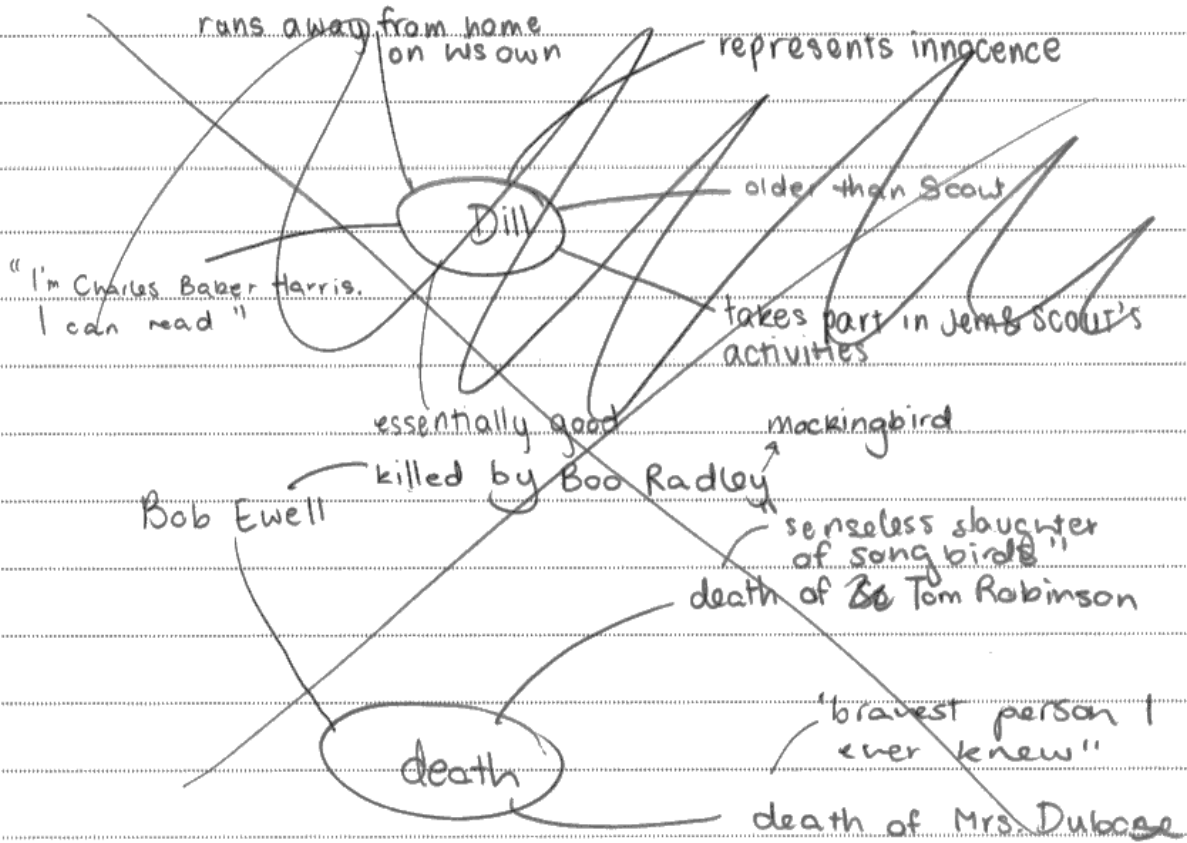 runs away from home
on his own
represents innocence
Dill
older than Scout
"I'm Charles Baker Harris.
I can read"
takes part in Jem & Scout's
activities
essentially good
mockingbird
killed by Boo Radley
Bob Ewell
senseless slaughter
of songbirds"
death of Tom Robinson
"bravest person I
ever knew"
death
death of Mrs. Dubose